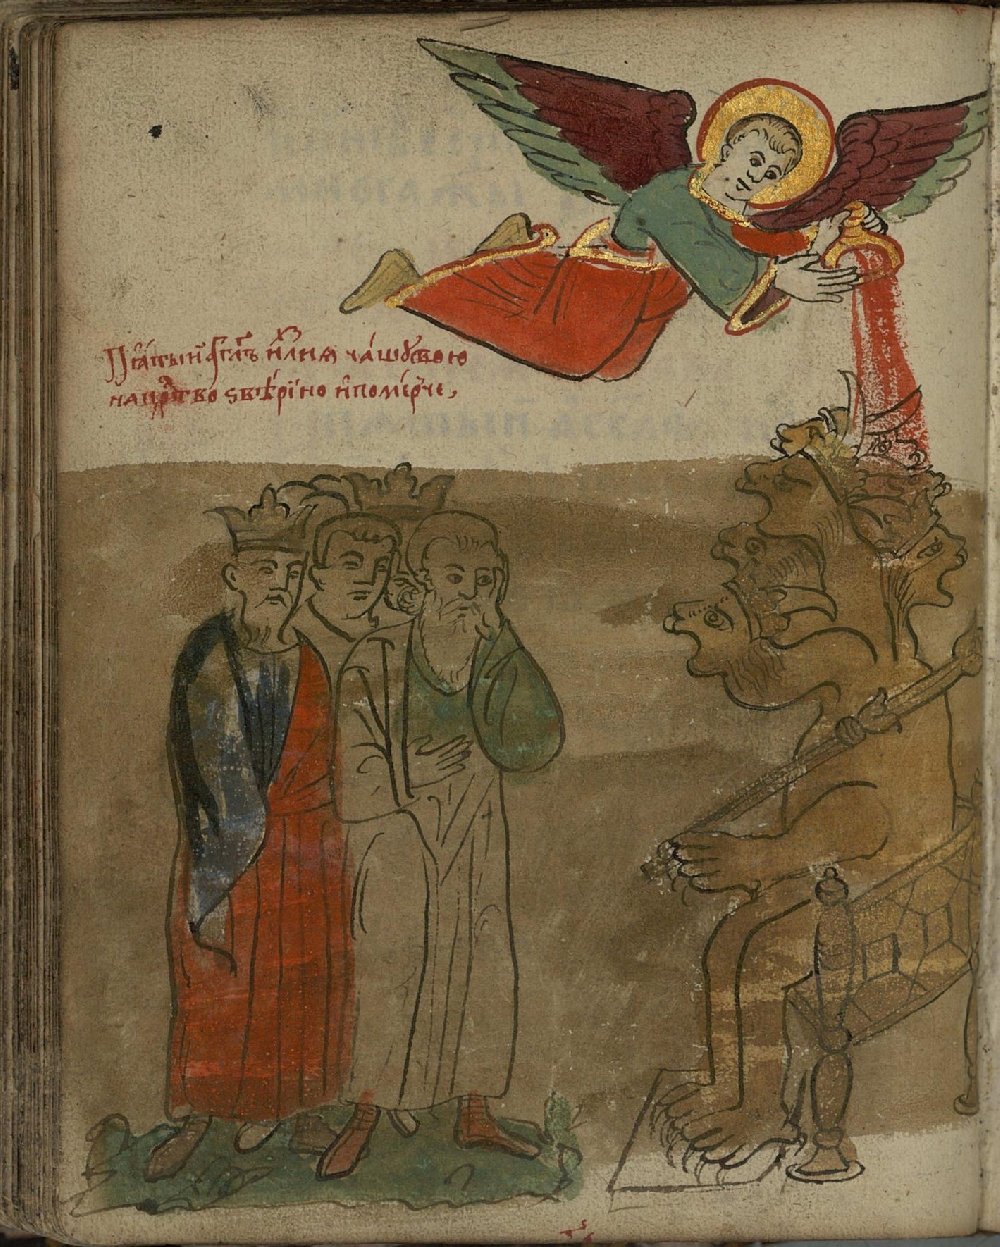 Пѧтый а҆гг҃лъ и҆злїѧ чашꙋ свою
на црⷭ҇тво ѕвѣрїно и҆ помⷬ҇че,